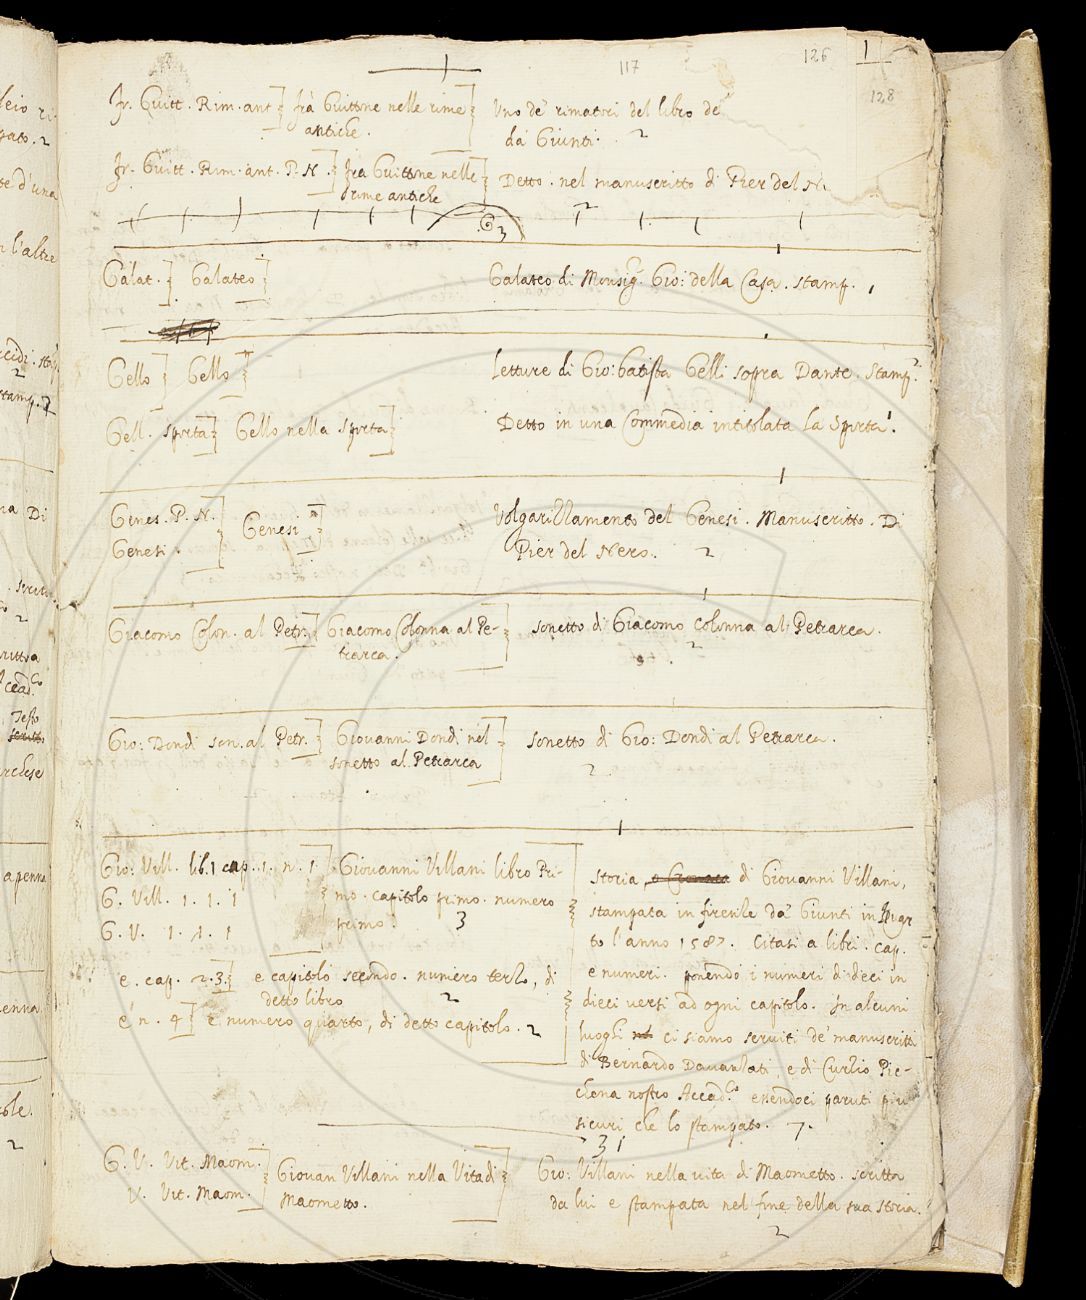 117 126 1
128
Fr. Guitt. Rim. ant] frà Guittone nelle rime] Uno de' rimatori del libro de
antiche. da Giunti. 2
Fr. Guitt. Rim. ant. P. N.] fra Guittone nelle] Detto. nel manuscritto di Pier del Ne
rime antiche 2
3
Galat.] Galateo] Galateo di Monsig. Gio: della Casa. stamp.
Gello] Gello] Letture di Gio: batista Gelli sopra Dante. stamp.
Gell. sporta] Gello nella sporta] Detto in una Commedia intitolata La sporta.
Genes. P. N.] Genesi] Volgarizzamento del Genesi. Manuscritto. Di
Genesi. Pier del Nero. 2
Giacomo Colon. al Petr.] Giacomo Colonna al Pe-] sonetto di Giacomo Colonna al Petrarca.
trarca. 2
Gio: Dondi son. al Petr.] Giovanni Dondi nel] sonetto di Gio: Dondi al Petrarca.
sonetto al Petrarca 2
Gio: Vill. lib. 1 cap. 1. n. 1 Giovanni Villani libro Pri-
G. Vill. 1. 1. 1 mo. capitolo primo. numero
G. V. 1. 1. 1 primo. 3
e. cap. 2. 3.] e capitolo secondo. numero terzo, di
detto libro 2
e n. 4] e numero quarto, di detto capitolo. 2
storia, o Cronaca di Giovanni Villani,
stampata in firenze da' Giunti in
to l'anno 1587. Citasi a libri. cap.
e numeri. ponendo i numeri di dieci in
dieci versi ad ogni capitolo. In alcuni
luoghi ci siamo serviti de' manuscritti
di Bernardo Davanzati, e di Curzio Pic-
chena nostro Accad.co essendoci paruti piu
sicuri che lo stampato. 7.
31
G. V. Vit. Maom.] Giovan Villani nella Vita di] Gio: Villani nella vita di Maometto. scritta
V. Vit. Maom. Maometto. da lui e stampata nel fine della sua storia.
2